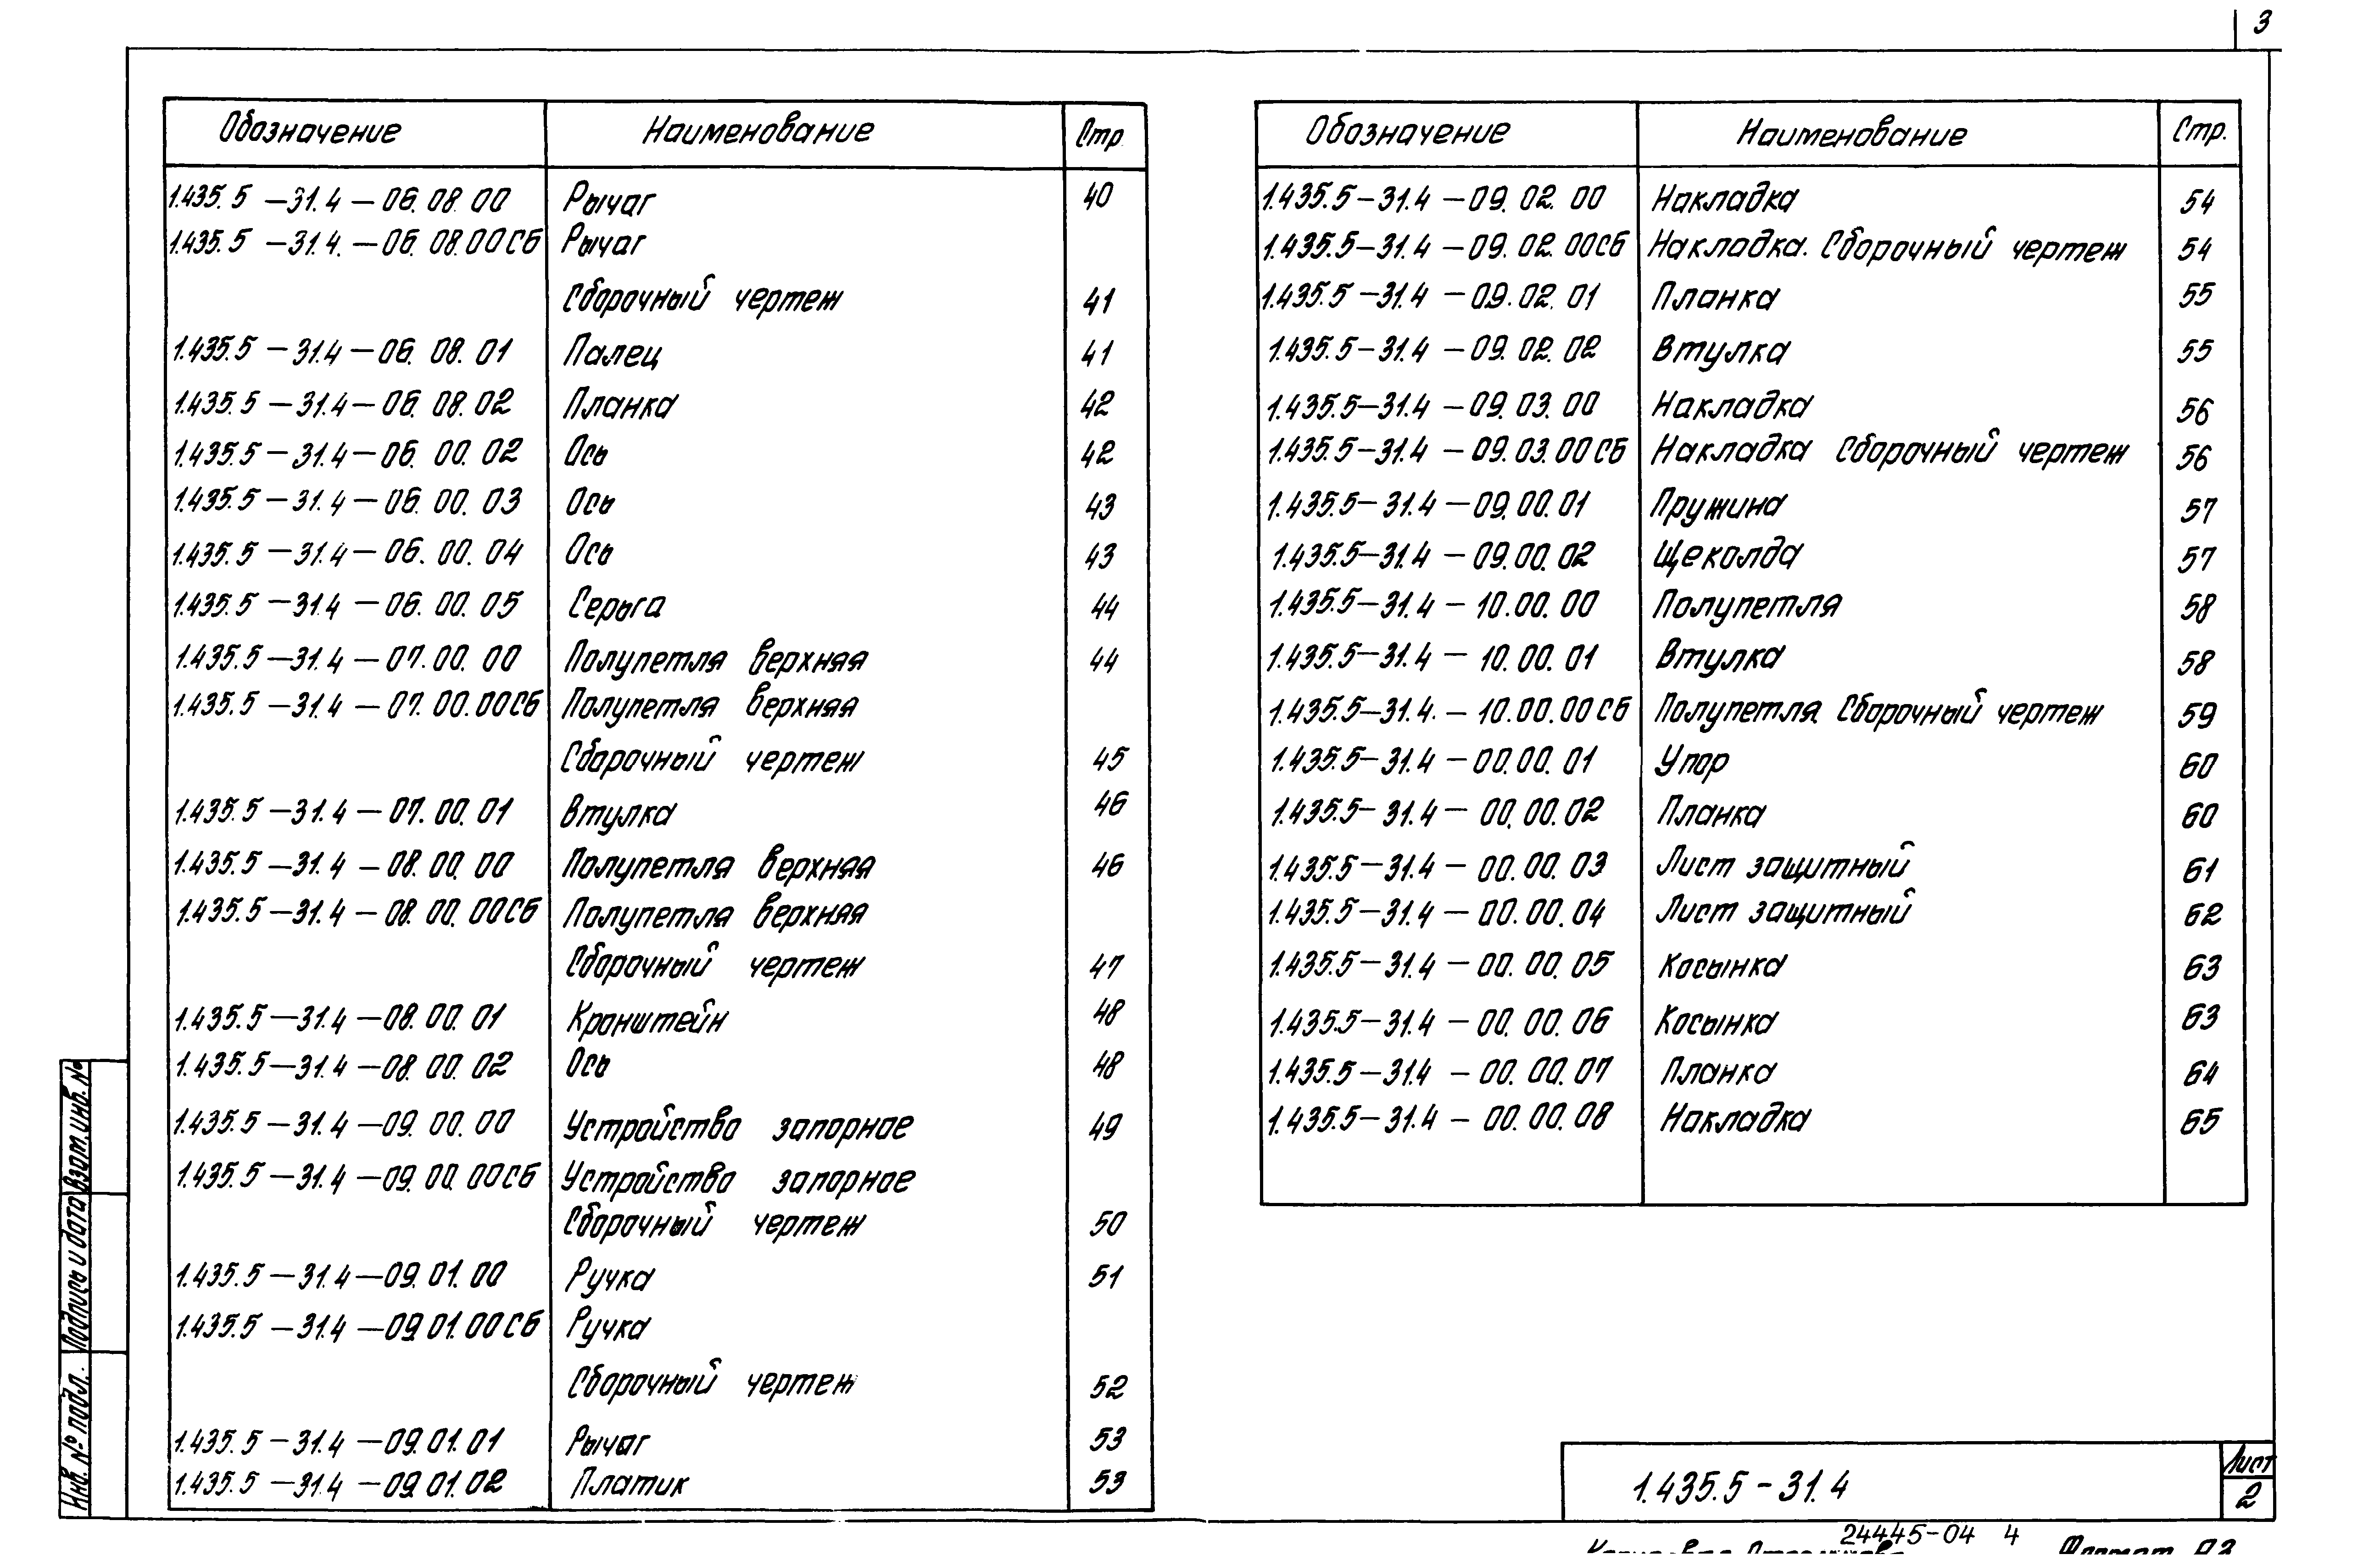 3
Обозначение Наименование Стр
1.435.5 –31.4 –06.08.00 Рычаг 40
1.435.5 –31.4. –06.08.00СБ Рычаг
Сборочный чертеж 41
1.435.5 –31.4 –06.08.01 Палец 41
1.435.5 –31.4 –06.08.02 Планка 42
1.435.5 –31.4 –06.00.02 Ось 42
1.435.5 –31.4 –06.00.03 Ось 43
1.435.5 –31.4 –06.00.04 Ось 43
1.435.5 –31.4 –06.00.05 Серьга 44
1.435.5 –31.4 –07.00.00 Полупетля верхняя 44
1.435.5 –31.4 –07.00.00СБ Полупетля верхняя
Сборочный чертеж 45
1.435.5 –31.4 –07.00.01 Втулка 46
1.435.5 –31.4 –08.00.00 Полупетля верхняя 46
1.435.5 –31.4 –08.00.00СБ Полупетля верхняя
Сборочный чертеж 47
1.435.5 –31.4 –08.00.01 Кронштейн 48
1.435.5 –31.4 –08.00.02 Ось 48
1.435.5 –31.4 –09.00.00 Устройство запорное 49
1.435.5 –31.4 –09.00.00СБ Устройство запорное
Сборочный чертеж 50
1.435.5 –31.4 –09.01.00 Ручка 51
1.435.5 –31.4 –09.01.00СБ Ручка
Сборочный чертеж 52
1.435.5 –31.4 –09.01.01 Рычаг 53
1.435.5 –31.4 –09.01.02 Платик 53
Обозначение Наименование Стр.
1.435.5–31.4 –09.02.00 Накладка 54
1.435.5–31.4 –09.02.00СБ Накладка. Сборочный чертеж 54
1.435.5–31.4 –09.02.01 Планка 55
1.435.5–31.4 –09.02.02 Втулка 55
1.435.5–31.4 –09.03.00 Накладка 56
1.435.5–31.4 –09.03.00СБ Накладка Сборочный чертеж 56
1.435.5–31.4 –09.00.01 Пружина 57
1.435.5–31.4 –09.00.02 Щеколда 57
1.435.5–31.4 –10.00.00 Полупетля 58
1.435.5–31.4 –10.00.01 Втулка 58
1.435.5–31.4. –10.00.00СБ Полупетля Сборочный чертеж 59
1.435.5–31.4 –00.00.01 Упор 60
1.435.5–31.4 –00.00.02 Планка 60
1.435.5–31.4 –00.00.03 Лист защитный 61
1.435.5–31.4 –00.00.04 Лист защитный 62
1.435.5–31.4 –00.00.05 Косынка 63
1.435.5–31.4 –00.00.06 Косынка 63
1.435.5–31.4 –00.00.07 Планка 64
1.435.5–31.4 –00.00.08 Накладка 65
Инв. № подл. Подпись и дата Взам.инв.№
1.435.5–31.4
Лист
2
24445-04 4
Формат А3